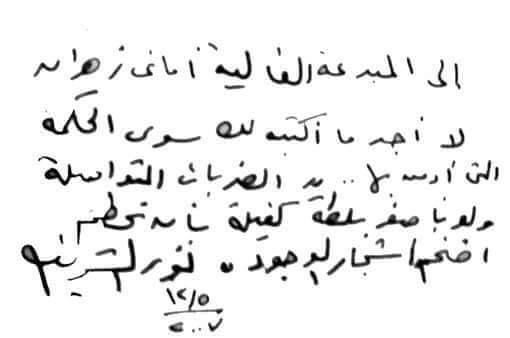 إلى المبدعة الغالية أماني زهران
لا أجد ما أكتبه لك سوى الحكمة
التى أومن بها .. إن الضربات المتواصلة
ولو بأصغر بلطة كفيلة بأن تحطم
أضخم أشجار الوجود . نور الشريف
١٢/٥
٢٠٠٧